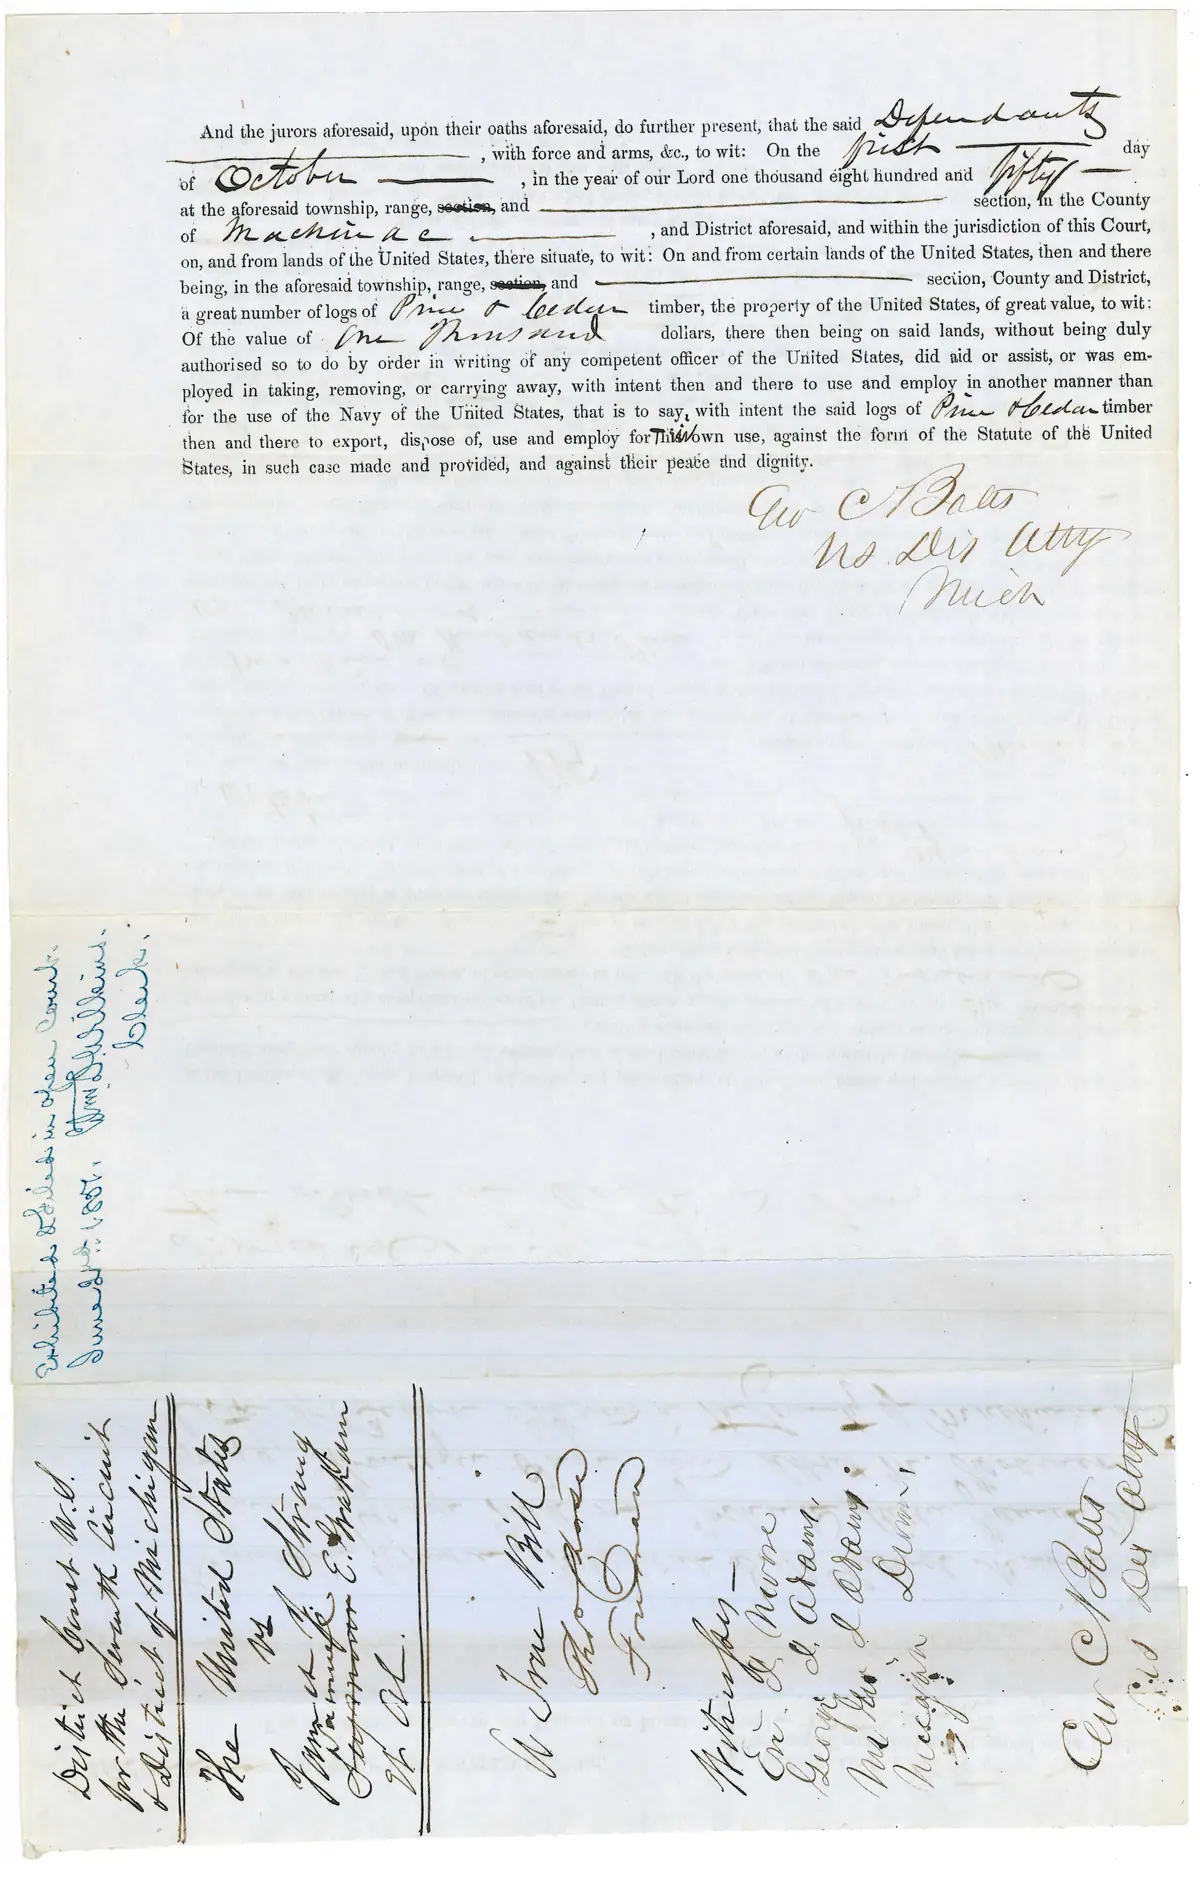 And the jurors aforesaid, upon their oaths aforesaid, do further present, that the said Defendants
, with force and arms, &c., to wit: On the first day
of October , in the year of our Lord one thousand eight hundred and fifty
at the aforesaid township, range, section, and section, in the County
of Mackinac , and District aforesaid, and within the jurisdiction of this Court,
on, and from lands of the United States, there situate, to wit: On and from certain lands of the United States, then and there
being, in the aforesaid township, range, section, and section, County and District,
a great number of logs of Pine & Cedar timber, the property of the United States, of great value, to wit:
Of the value of One Thousand dollars, there then being on said lands, without being duly
authorised so to do by order in writing of any competent officer of the United States, did aid or assist, or was em-
ployed in taking, removing, or carrying away, with intent then and there to use and employ in another manner than
for the use of the Navy of the United States, that is to say, with intent the said logs of Pine & Cedar timber
then and there to export, dispose of, use and employ for Their own use, against the form of the Statute of the United
States, in such case made and provided, and against their peace and dignity.
Geo C Bates
US Dis Atty
Mich
Exhibited & Filed in open Court.
June 2nd 1851. Wm D Wilkins.
Clerk.
District Court U.S.
for the Seventh Circuit
& District of Michigan
The United States
vs
James J. Strang
Samuel Graham
et al.
A True Bill
Foreman
Witnesses
Moore
George I. Adams.
Mrs Geo I Adams
Geo C Bates
US Dis Atty